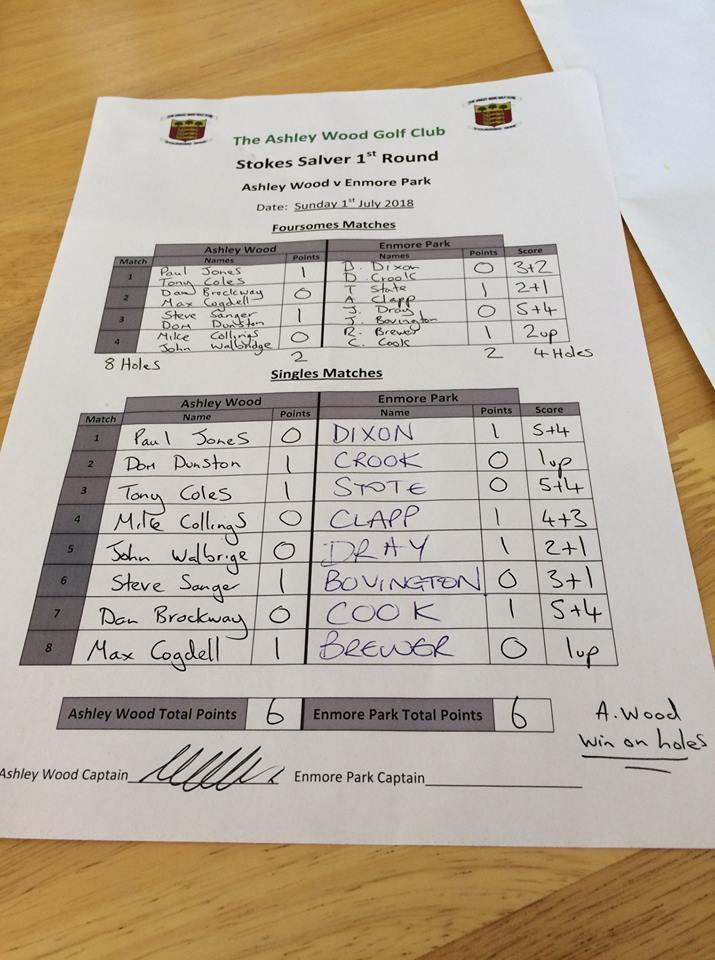 The Ashley Wood Golf Club
Stokes Salver 1st Round
Ashley Wood v Enmore Park
Date: Sunday 1st July 2018
Foursomes Matches
Ashley Wood Enmore Park
Match Names Points Names Points Score
1 Paul Jones 1 D. Dixon 0 3+2
Tony Coles D. Crook
2 Dan Brockway 0 T State 1 2+1
Max Cogdell A. Clapp
3 Steve Sanger 1 J. Dray 0 5+4
Dom Dunston J. Bovington
4 Mike Collings 0 R. Brewer 1 2up
John Walbridge C. Cook
8 Holes 2 2 4 Holes
Singles Matches
Ashley Wood Enmore Park
Match Name Points Name Points Score
1 Paul Jones 0 DIXON 1 5+4
2 Dom Dunston 1 CROOK 0 1up
3 Tony Coles 1 STOTE 0 5+4
4 Mike Collings 0 CLAPP 1 4+3
5 John Walbrige 0 DRAY 1 2+1
6 Steve Sanger 1 BOVINGTON 0 3+1
7 Dan Brockway 0 COOK 1 5+4
8 Max Cogdell 1 BREWER 0 1up
Ashley Wood Total Points 6 Enmore Park Total Points 6
A. Wood
win on holes
Ashley Wood Captain Enmore Park Captain